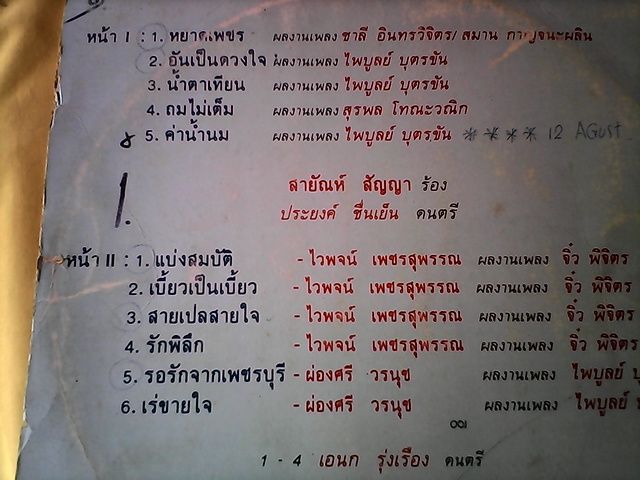 หน้า I : 1. หยาดเพชร ผลงานเพลง ชาลี อินทรวิจิตร/ สมาน กาญจนะผลิน
2. อันเป็นดวงใจ ผลงานเพลง ไพบูลย์ บุตรขัน
3. น้ำตาเทียน ผลงานเพลง ไพบูลย์ บุตรขัน
4. ถมไม่เต็ม ผลงานเพลง สุรพล โทณะวณิก
5. ค่าน้ำนม ผลงานเพลง ไพบูลย์ บุตรขัน **** 12 AGUST
1.
สายัณห์ สัญญา ร้อง
ประยงค์ ชื่นเย็น ดนตรี
หน้า II : 1. แบ่งสมบัติ - ไวพจน์ เพชรสุพรรณ ผลงานเพลง จิ๋ว พิจิตร
2. เบี้ยวเป็นเบี้ยว - ไวพจน์ เพชรสุพรรณ ผลงานเพลง จิ๋ว พิจิตร
3. สายเปลสายใจ - ไวพจน์ เพชรสุพรรณ ผลงานเพลง จิ๋ว พิจิตร
4. รักพิลึก - ไวพจน์ เพชรสุพรรณ ผลงานเพลง จิ๋ว พิจิตร
5. รอรักจากเพชรบุรี - ผ่องศรี วรนุช ผลงานเพลง ไพบูลย์
6. เร่ขายใจ - ผ่องศรี วรนุช ผลงานเพลง ไพบูลย์
1 - 4 เอนก รุ่งเรือง ดนตรี